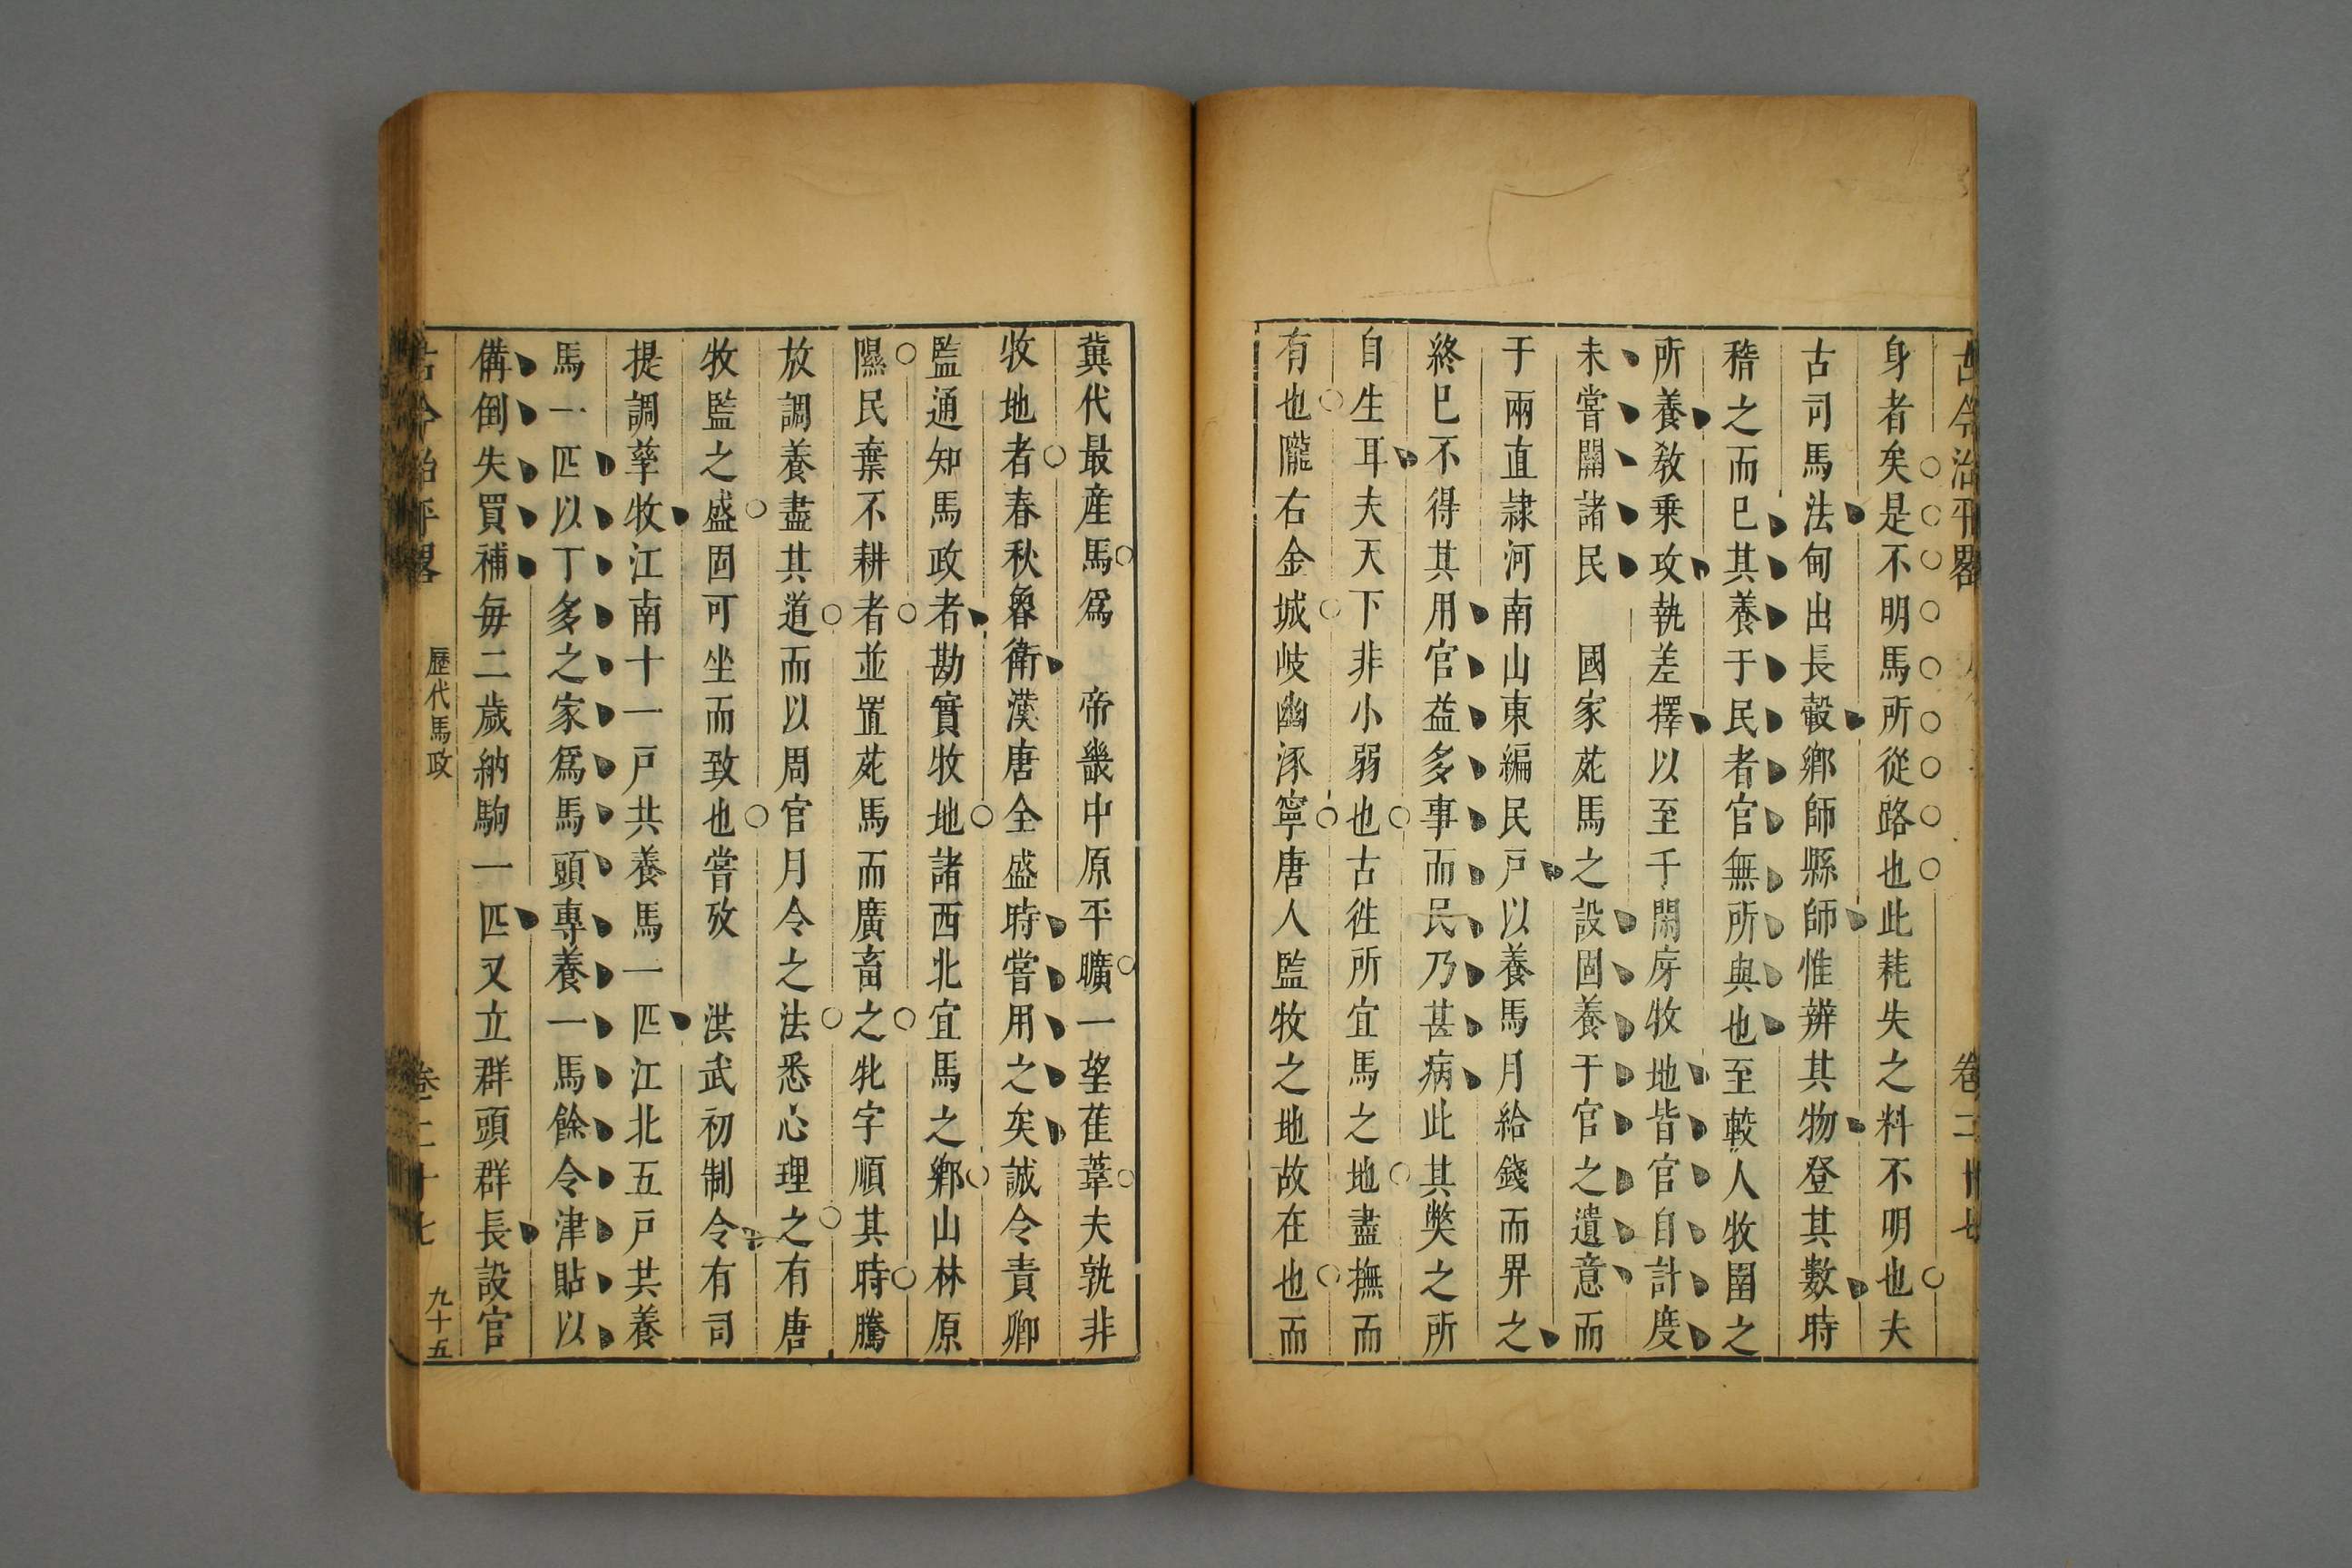 古今治平畧
卷二十七
身者矣是不明馬所從路也此耗失之料不明也夫
古司馬法甸出長轂鄉師縣師惟辨其物登其數時
稽之而已其養于民者官無所與也至較人牧圉之
所養敎乗攻執差擇以至千閑房牧地皆官自計度
未嘗關諸民 國家苑馬之設固養于官之遺意而
于兩直隷河南山東編民戸以養馬月給錢而畀之
終巳不得其用官益多事而民乃甚病此其獘之所
自生耳夫天下非小弱也古徃所宜馬之地盡撫而
有也隴右金城岐豳涿寧唐人監牧之地故在也而
冀代最産馬爲 帝畿中原平曠一望萑葦夫孰非
牧地者春秋魯衛漢唐全盛時嘗用之矣誠令責卿
監通知馬政者勘實牧地諸西北宜馬之鄉山林原
隰民棄不耕者並置苑馬而廣畜之牝字順其時騰
放調養盡其道而以周官月令之法悉心理之有唐
牧監之盛固可坐而致也嘗攷 洪武初制令有司
提調孳牧江南十一戸共養馬一匹江北五戸共養
馬一匹以丁多之家爲馬頭專養一馬餘令津貼以
備倒失買補每二歲納駒一匹又立群頭群長設官
古今治平畧
歷代馬政
卷二十七
九十五